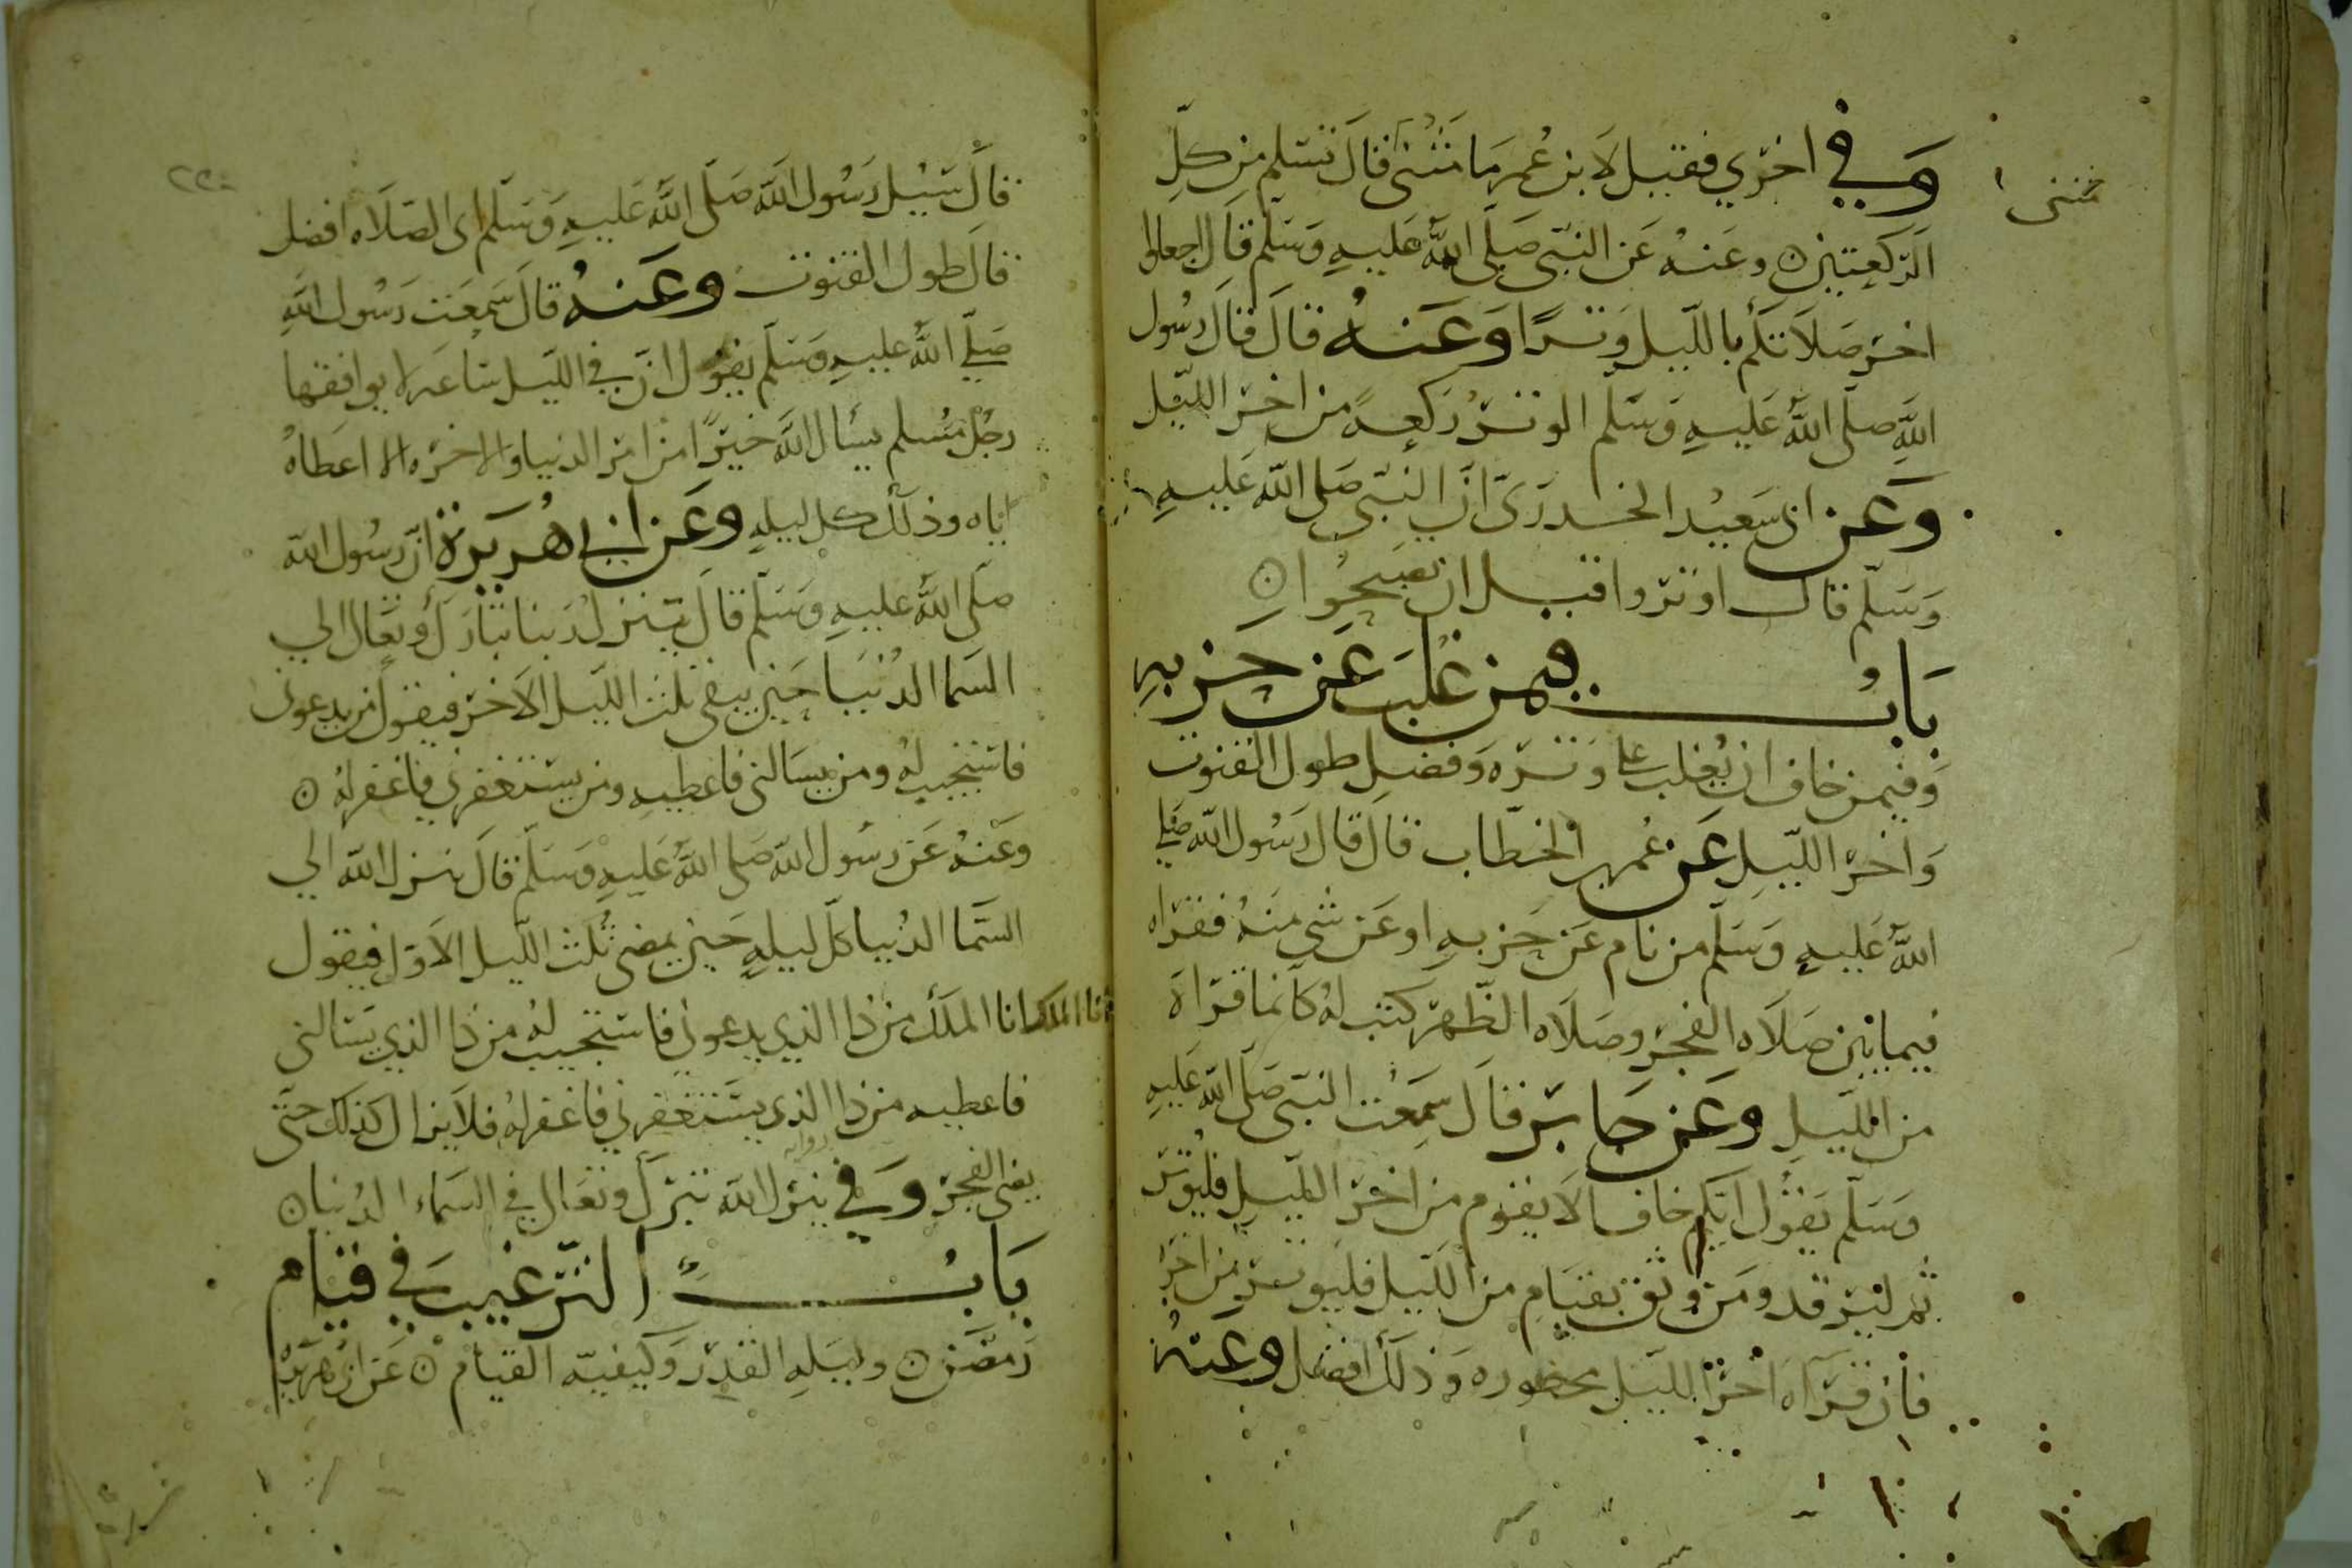 وفي اخري فقيل لابن عمر ما مثنى قال تسلم من كل
مثنى
الركعتين وعنه عن النبي صلى الله عليه وسلم قال اجعلوا
اخر صلاتكم بالليل وترا وعنه قال قال رسول
الله صلى الله عليه وسلم الوتر ركعة من اخر الليل
وعن ابى سعيد الخدرى ان النبي صلى الله عليه
وسلم قال اوتروا قبل ان تصبحوا
باب فيمن غلب عن حزبه
وفيمن خاف ان يغلب على وتره وفضل طول القنوت
واخر الليل عن عمر بن الخطاب قال قال رسول الله صلي
الله عليه وسلم من نام عن حزبه او عن شي منه فقراه
فيما بين صلاه الفجر وصلاه الظهر كتب له كانما قراه
من الليل وعن جابر قال سمعت النبي صلى الله عليه
وسلم يقول ايكم خاف الا يقوم من اخر الليل فليوتر
ثم ليرقد ومن وثق بقيام من الليل فليوتر من اخره
فان قراه اخر الليل محضوره وذلك افضل وعنه
٢٢٠
قال سيل رسول الله صلى الله عليه وسلم اى الصلاه افضل
قال طول القنوت وعنه قال سمعت رسول الله
صلي الله عليه وسلم يقول ان في الليل ساعه لا يوافقها
رجل مسلم يسال الله خيرا من امر الدنيا والاخره الا اعطاه
اياه وذلك كل ليله وعن ابي هريرة ان رسول الله
صلى الله عليه وسلم قال ينزل ربنا تبارك وتعالى الي
السما الدنيا حين يبقى ثلث الليل الاخر فيقول من يدعونى
فاستجيب له ومن يسالني فاعطيه ومن يستغفرني فاغفر له
وعنه عن رسول الله صلى الله عليه وسلم قال ينزل الله الي
السما الدنيا كل ليله حين يمضى ثلث الليل الاول فيقول
انا الملك انا الملك من ذا الذي يدعوني فاستجيب له من ذا الذي يسالني
فاعطيه من ذا الذي يستغفرني فاغفر له فلا يزال كذلك حتى
يضى الفجر وفي روايه ينزل الله تبرك وتعالى في السماء الدنيا
باب الترغيب في قيام
رمضن وليله القدر وكيفيه القيام عن ابي هريرة